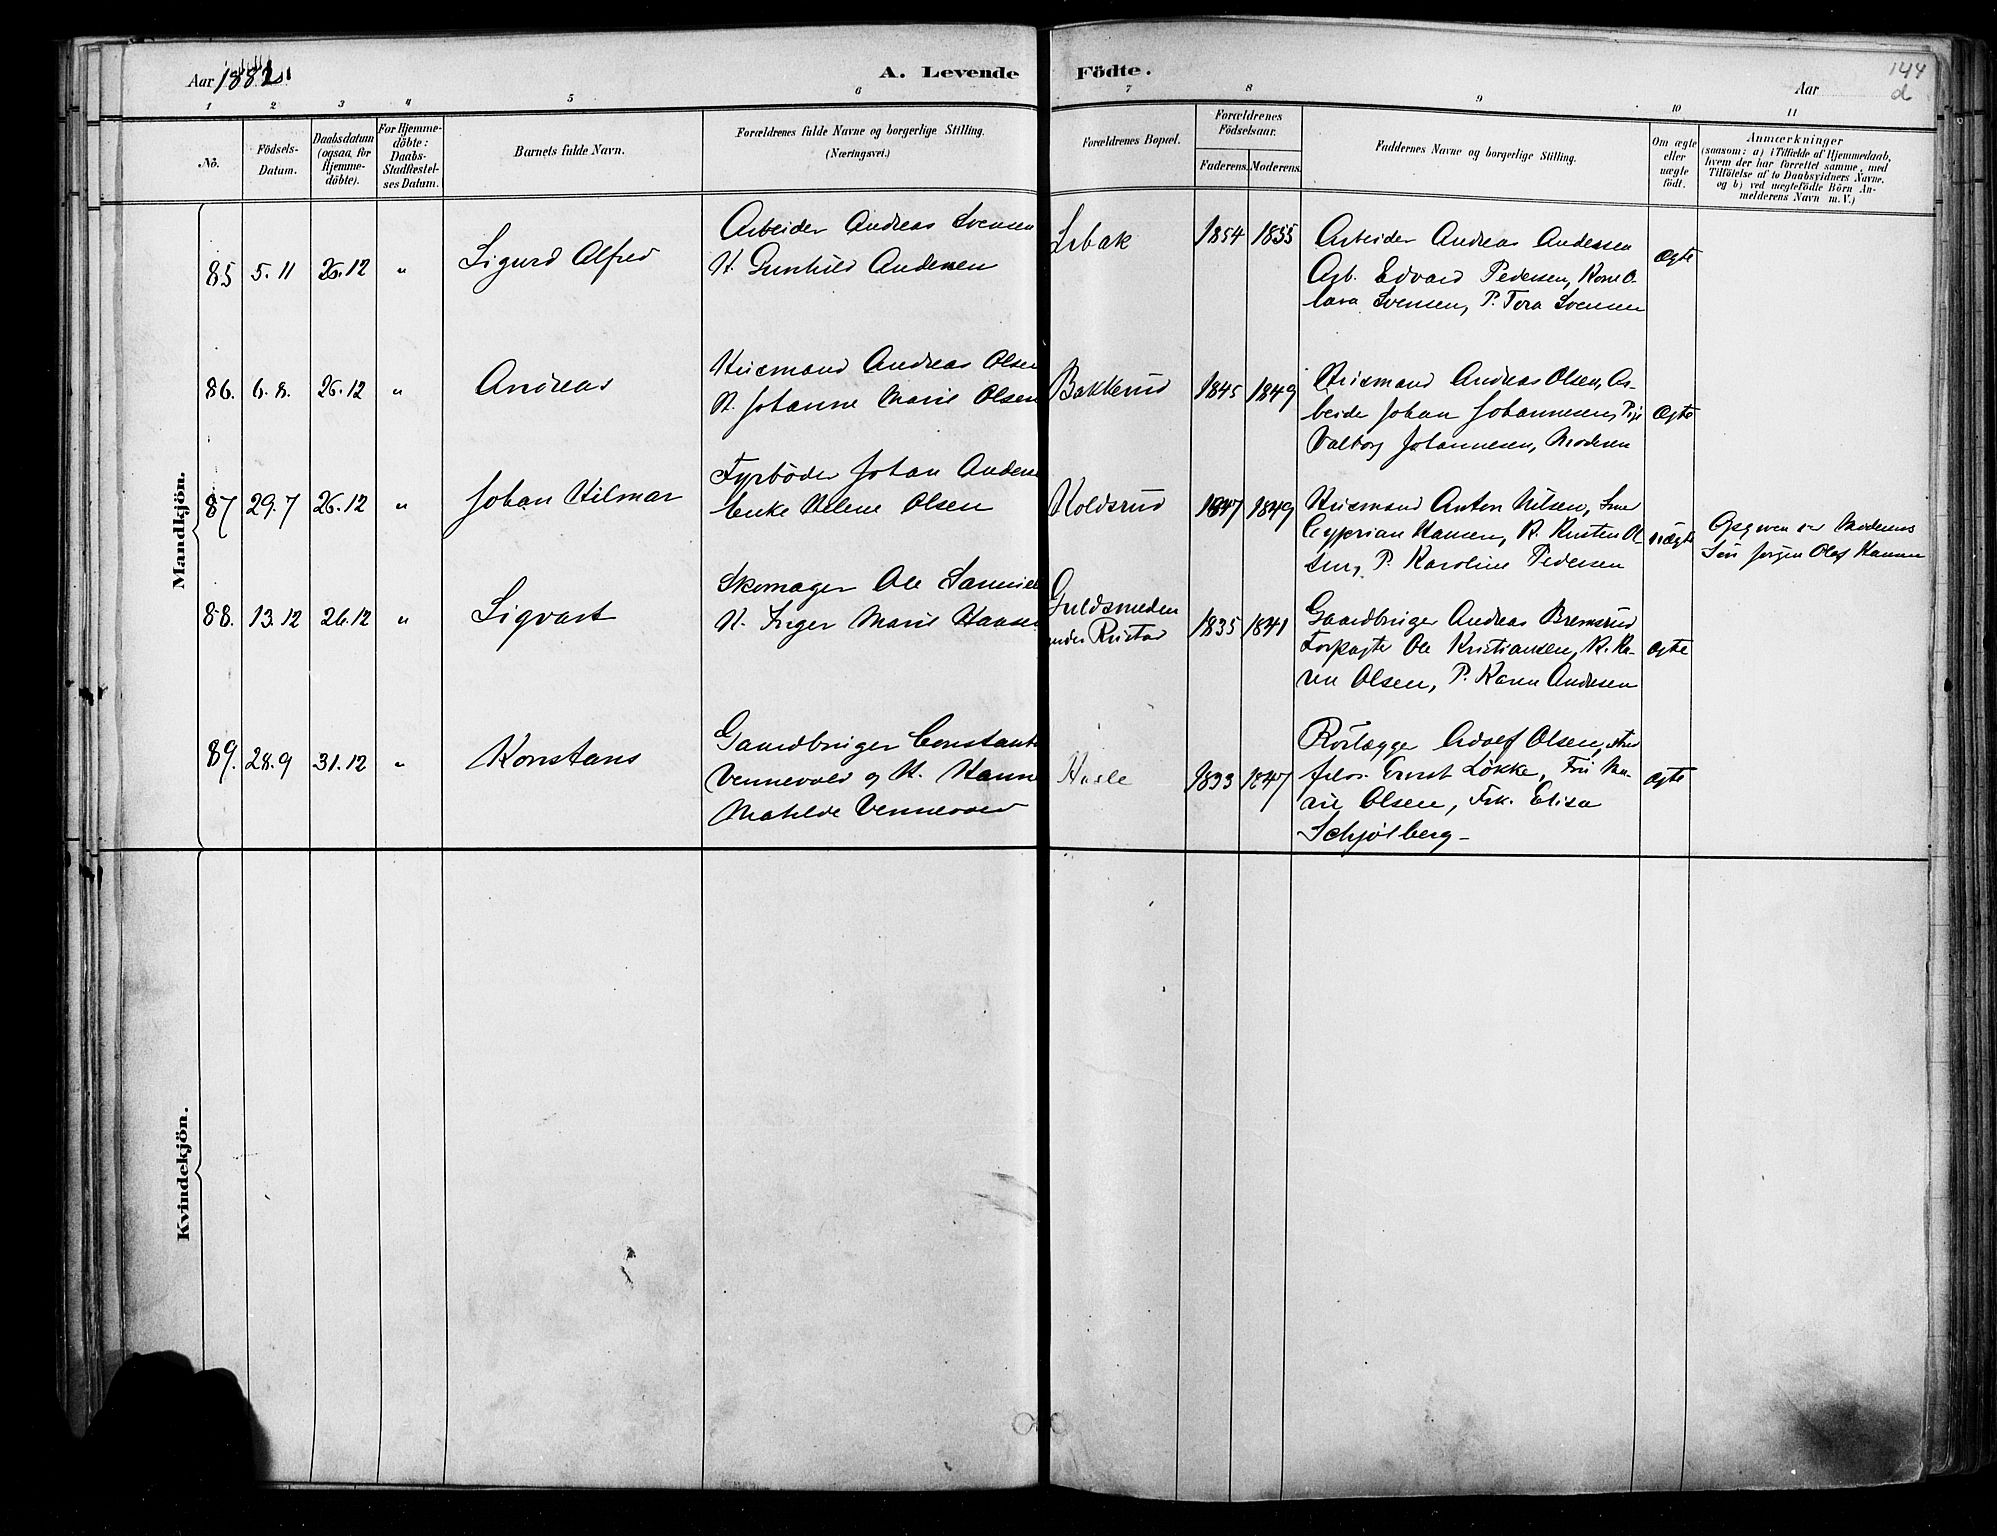 Aar 1882.
A. Levende Födte.
Aar
144
d
1 2 3 4 5 6 7 8 9 10 11
No.
Födsels-
Datum.
Daabsdatum
(ogsaa for
Hjemme-
döbte).
For Hjemme-
döbte:
Daabs-
Stadfæstel-
ses Datum.
Barnets fulde Navn.
Forældrenes fulde Navne og borgerlige Stilling.
(Næringsvei.)
Forældrenes Bopæl.
Forældrenes
Födselsaar.
Faderens. Moderens.
Faddernes Navne og borgerlige Stilling.
Om ægte
eller
uægte
födt.
Anmærkninger
(saasom: a) i Tilfælde af Hjemmedaab,
hvem der har forrettet samme, med
Tilföielse af to Daabsvidners Navne.
og b) ved uægtefödte Börn An-
melderens Navn m. V.)
Mandkjön.
85 5.11 26.12 " Sigurd Alfred
Arbeider Andreas Svensen
H. Gunhild Andersen
1854 1855
Arbeider Andreas Andersen
Arb. Edvard Pedersen, Kone O-
lava Svensen, P. Tora Svensen
ægte
86. 6.8. 26.12 " Andreas
Husmand Andreas Olsen
H. Johanne Marie Olsen
Bakkerud
1845 1849
Husmand Andreas Olsen, Ar-
beider Johan Johannesen, Pige
Valborg Johannesen, Moderen
ægte
87 29.7 26.12 " Johan Hilmar
Fyrböder Johan Anders
Enke Helene Olsen
Holdsrud
1847 1849
Husmand Anton Nilsen,
Cyprian Hansen, K. Kirsten Ol-
sen, P. Karoline Pedersen
uægte
Opgiven er Moderens
Sön Jørgen Olaf Hansen
88. 13.12 26.12 " Sigvart
Skomager Ole Samuels
H. Inger Marie Hansen
Guldsmeden
under Rustad
1835 1841
Gaardbruger Andreas Bremsrud
Forpagter Ole Kristiansen, K. Ka-
ren Olsen, P. Karen Andersen
ægte
89. 28.9 31.12 " Konstans
Gaardbruger Constant
Vennevold og H. Hanne
Mathilde Vennevold
Hasle
1833 1847
Rörlægger Adolf Olsen, stud
filos. Ernst Løkke, Fru Ma-
rie Olsen, Frk. Elisa
Schjölberg -
ægte
Kvindekjön.